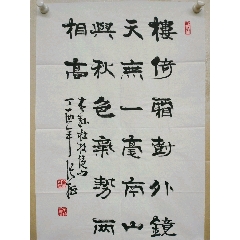 樓倚霜樹外鏡
天無一毫南山
與秋色氣勢兩
相高
丁酉年